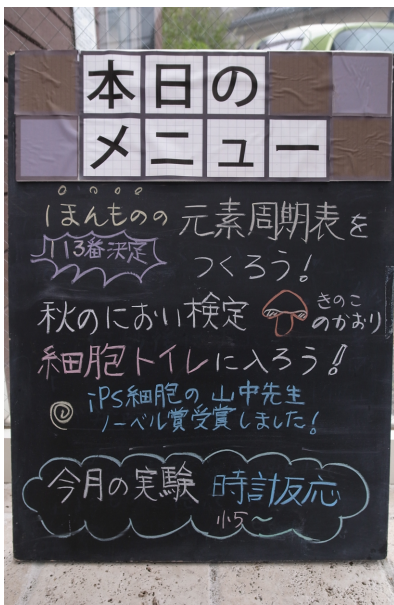 本日の
メニュー
ほんものの 元素周期表を
113番決定
つくろう!
秋のにおい検定 きのこ
のかおり
細胞トイレに入ろう!!
iPS細胞の山中先生
ノーベル賞受賞しました!
今月の実験 時計反応
小5〜